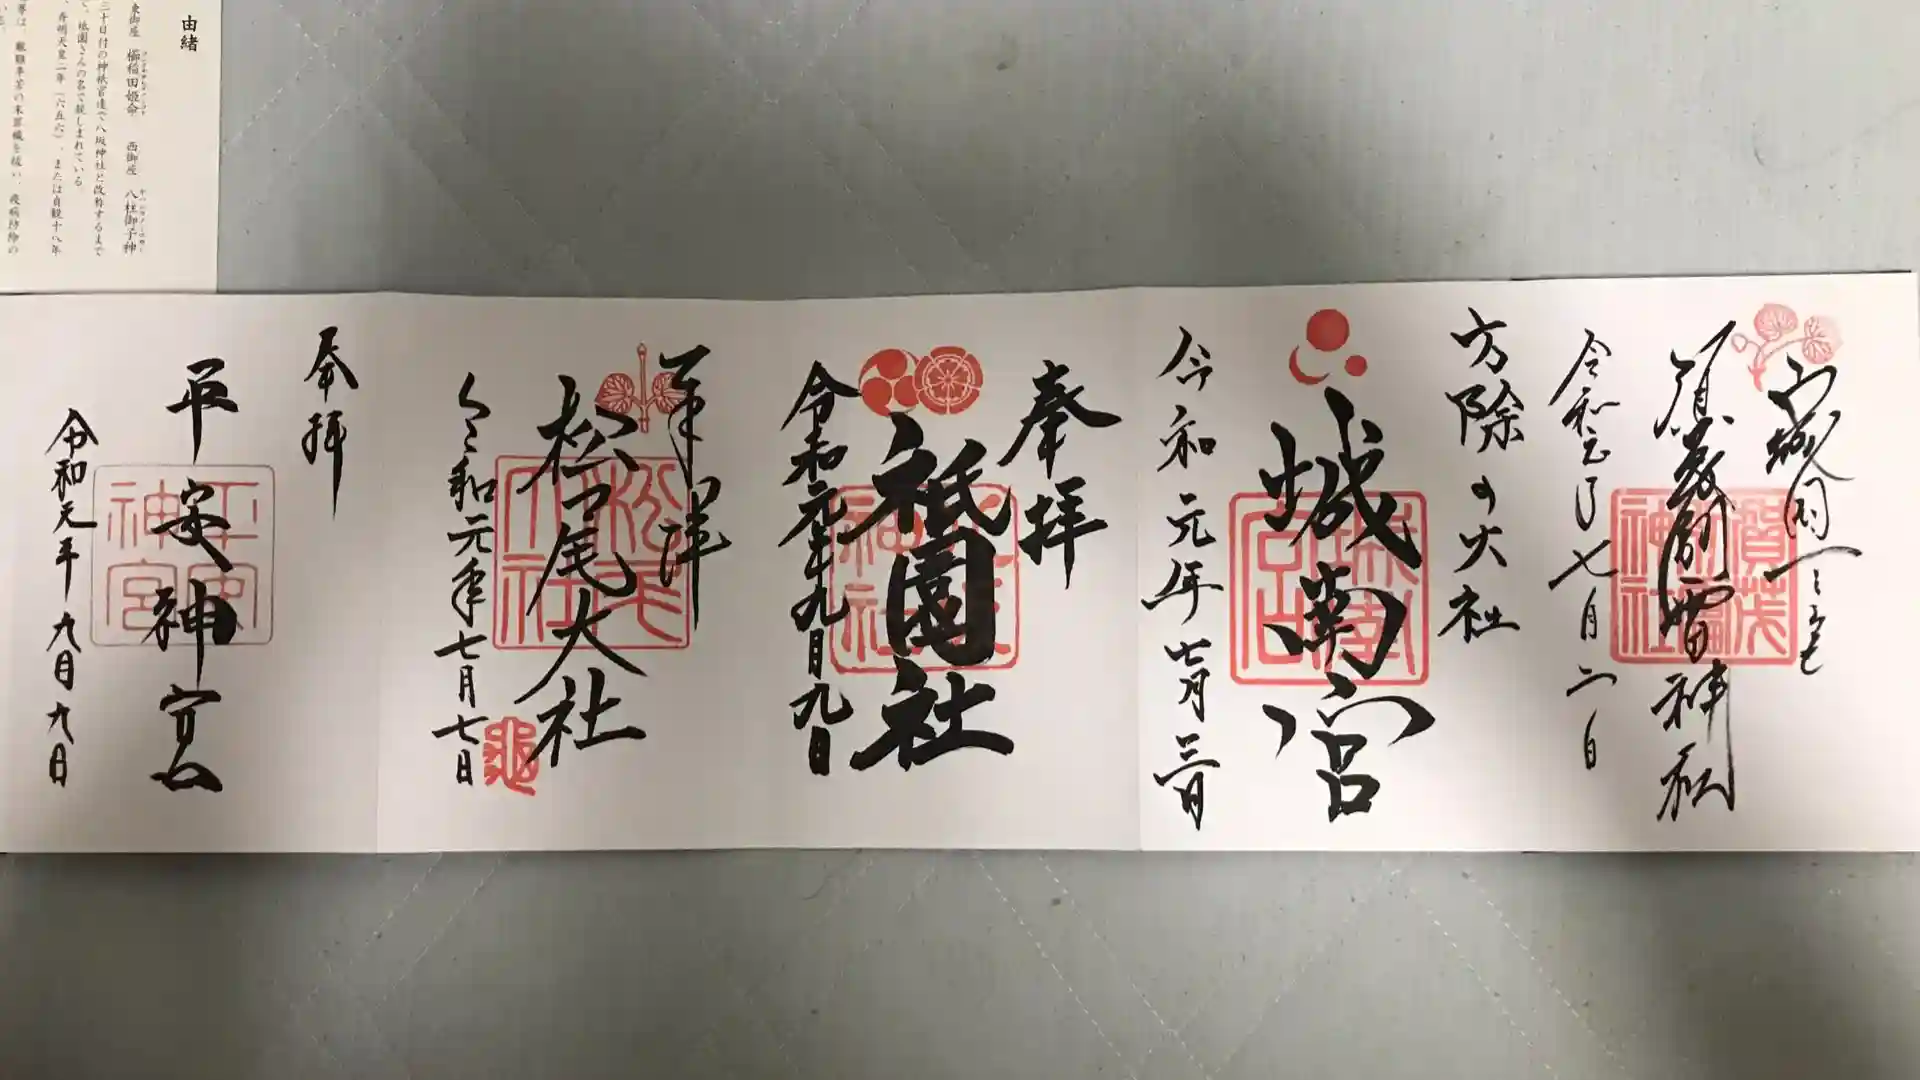 由緒
東御座 櫛稲田姫命 西御座 八柱御子神
三十日付の神祇官達で八坂神社と改称するまで
、祇園さんの名で親しまれている
、斉明天皇二年(六五六)、または貞観十八年
疫病防除の
山城国一之宮
賀茂別雷神社
賀茂別雷神社
令和元年七月二日
方除の大社
城南宮
令和元年七月三日
奉拝
祇園社
令和元年九月九日
奉拝
松尾大社
松尾大社
令和元年七月七日
奉拝
平安神宮
平安神宮
令和元年九月九日